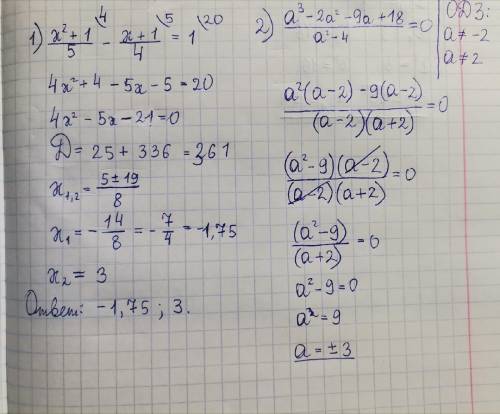 1) (x²+1)/5 \4 - (x+1)/4 \5 = 1 \20
4x²+4-5x-5=20
4x²-5x-21=0
D = 25 + 336 = 361
x₁,₂ = (5±19)/8
x₁ = -14/8 = -7/4 = -1,75
x₂ = 3
Ответ: -1,75 ; 3.
2) (a³-2a²-9a+18)/(a²-4) = 0
ОДЗ:
a≠-2
a≠2
(a²(a-2)-9(a-2))/((a-2)(a+2)) = 0
((a²-9)(a-2))/((a-2)(a+2)) = 0
(a²-9)/(a+2) = 0
a²-9=0
a²=9
a=±3